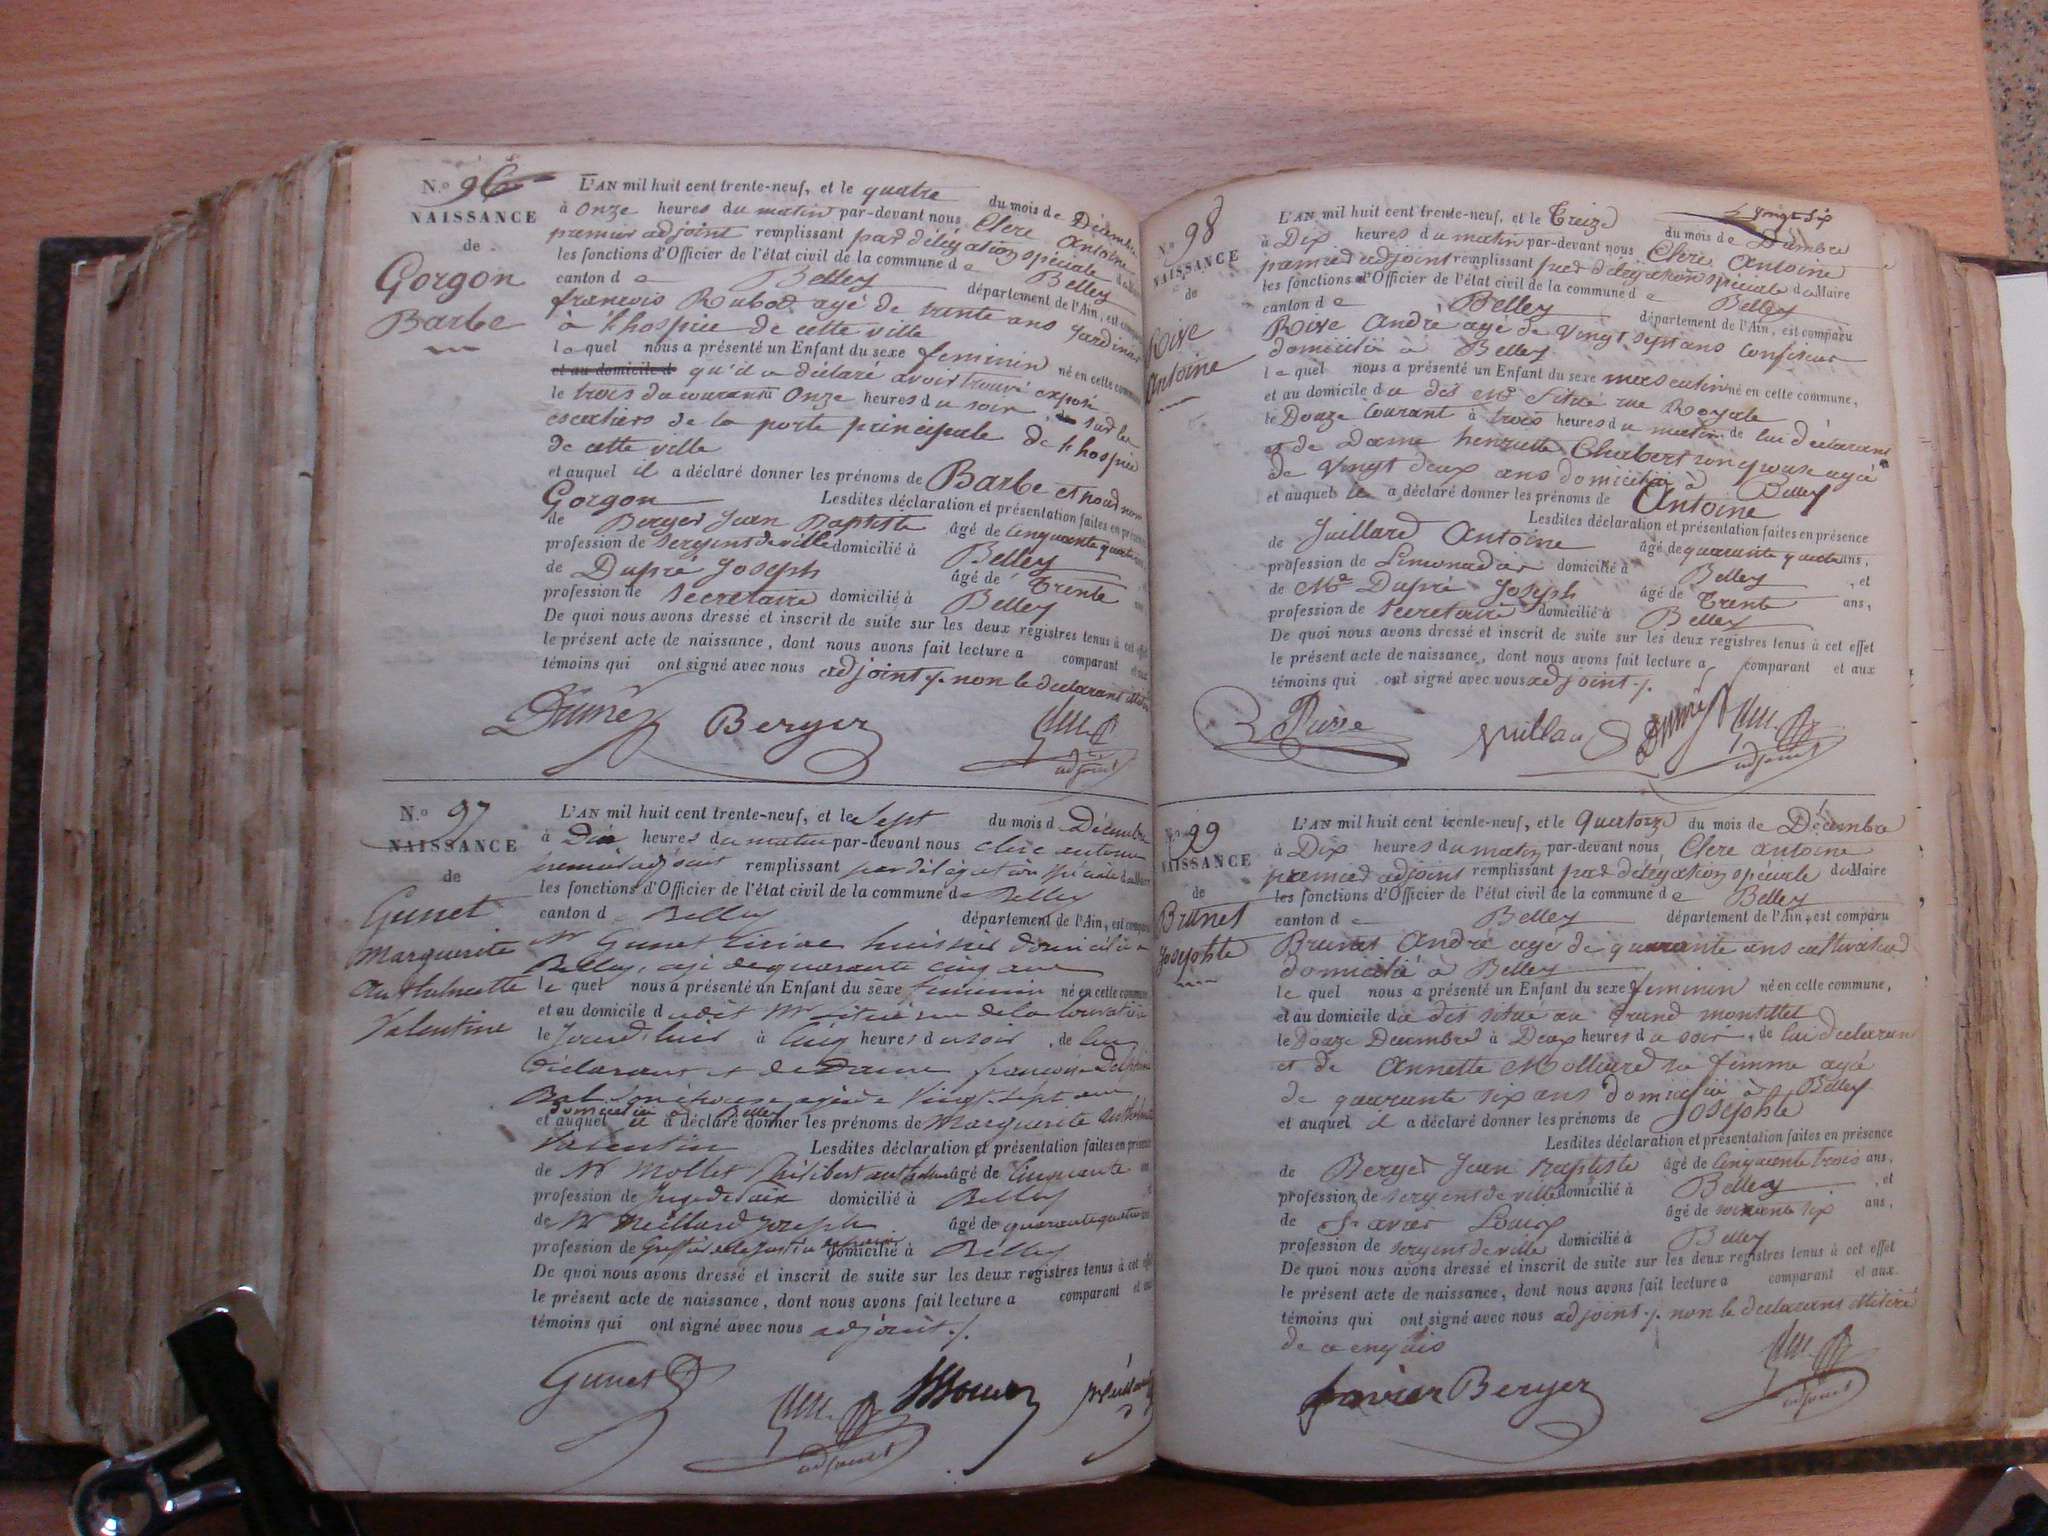 N.º 96
NAISSANCE
de
Gorgon
Barbe
L'AN mil huit cent trente-neuf, et le quatre du mois de Décembre
à onze heures du matin par-devant nous Clerc Antoine
premier adjoint remplissant par délégation spéciale du Maire
les fonctions d'Officier de l'état civil de la commune de Belley
canton de Belley département de l'Ain, est comparu
françois Rubod agé de trente ans jardinier
à l'hospice de cette ville
lequel nous a présenté un Enfant du sexe feminin né en cette commune
et au domicile d qu'il a déclaré avoir trouvé exposé
le trois du courant à onze heures du soir, sur les
escaliers de la porte principale de l'hospice
de cette ville
et auquel il a déclaré donner les prénoms de Barbe et nom
Gorgon Lesdites déclaration et présentation faites en présence
de Berger Jean Baptiste âgé de cinquante quatre ans,
profession de sergent de ville domicilié à Belley
de Dupré Joseph âgé de Trente ans
profession de secretaire domicilié à Belley
De quoi nous avons dressé et inscrit de suite sur les deux registres tenus à cet effet
le présent acte de naissance, dont nous avons fait lecture a comparant et aux
témoins qui ont signé avec nous adjoint ./. non le declarant illitéré
Dupré Berger Clerc
adjoint
N.º 97
NAISSANCE
de
Gunet
Marguerite
Anthelmette
Valentine
L'AN mil huit cent trente-neuf, et le Sept du mois d Décembre
à Dix heures du matin par-devant nous Clerc antoine
premier adjoint remplissant par délégation spéciale du Maire
les fonctions d'Officier de l'état civil de la commune de Belley
canton d Belley département de l'Ain, est comparu
Mr Gunet huissier domicilié à
Belley, agé de quarante cinq ans
le quel nous a présenté un Enfant du sexe feminin né en cette commune
et au domicile dudit Mr situé rue de la
le jourd'hier à Cinq heures du soir, de lui
déclarant et de Dame françoise Delphine
Bal son épouse agée de Vingt Sept ans
domiciliée à Belley
et auquel il a déclaré donner les prénoms de Marguerite Anthelmette
Valentine Lesdites déclaration et présentation faites en présence
de Mr Mollet Philibert anthelme âgé de Cinquante ans
profession de Juge de Paix domicilié à Belley
de Mr Joseph âgé de quarante quatre ans
profession de Greffier de la justice de paix domicilié à Belley
De quoi nous avons dressé et inscrit de suite sur les deux registres tenus à cet effet
le présent acte de naissance, dont nous avons fait lecture a comparant et aux
témoins qui ont signé avec nous adjoint ./.
Gunet Clerc
adjoint
vingt six
N.º 98
NAISSANCE
de
Rive
Antoine
L'AN mil huit cent trente-neuf, et le Treize du mois de Décembre
à Dix heures du matin par-devant nous Clerc Antoine
premier adjoint remplissant par délégation spéciale du Maire
les fonctions d'Officier de l'état civil de la commune de Belley
canton de Belley département de l'Ain, est comparu
Rive André agé de vingt sept ans confiseur
domicilié à Belley
lequel nous a présenté un Enfant du sexe masculin né en cette commune,
et au domicile du dit Mr Situé rue Royale
le Douze Courant à trois heures du matin de lui déclarant
et de dame henriette Chabert son epouse agée
de vingt deux ans domiciliée à Belley
et auquel il a déclaré donner les prénoms de Antoine
Lesdites déclaration et présentation faites en présence
de Juillard Antoine âgé de quarante quatre ans,
profession de Limonadier domicilié à Belley, et
de Mr Dupré Joseph âgé de Trente ans,
profession de Secretaire domicilié à Belley
De quoi nous avons dressé et inscrit de suite sur les deux registres tenus à cet effet
le présent acte de naissance, dont nous avons fait lecture a comparant et aux
témoins qui ont signé avec nous adjoint ./.
Dupré Clerc
adjoint
N.º 99
NAISSANCE
de
Brunet
Josephte
L'AN mil huit cent trente-neuf, et le Quatorze du mois de Décembre
à Dix heures du matin par-devant nous Clerc antoine
premier adjoint remplissant par délégation spéciale du Maire
les fonctions d'Officier de l'état civil de la commune de Belley
canton de Belley département de l'Ain, est comparu
Brunet André agé de quarante ans cultivateur
domicilié à Belley
le quel nous a présenté un Enfant du sexe feminin né en cette commune,
et au domicile du dit situé au Grand montillet
le Douze Decembre à Deux heures du soir, de lui declarant
et de Annette Molliard sa femme agée
de quarante six ans domiciliée à Belley
et auquel il a déclaré donner les prénoms de Josephte
Lesdites déclaration et présentation faites en présence
de Berger Jean Baptiste âgé de Cinquante trois ans,
profession de sergent de ville domicilié à Belley, et
de Savier Louis âgé de soixante six ans,
profession de sergent de ville domicilié à Belley
De quoi nous avons dressé et inscrit de suite sur les deux registres tenus à cet effet
le présent acte de naissance, dont nous avons fait lecture a comparant et aux
témoins qui ont signé avec nous adjoint ./. non le declarant illitéré
de ce enquis
Savier Berger Clerc
adjoint